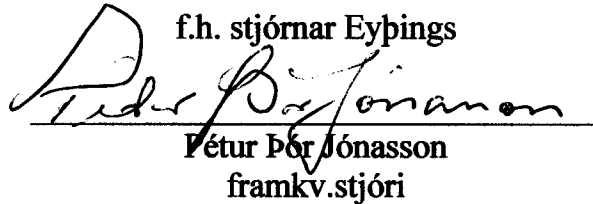 f.h. stjórnar Eyþings
Pétur Þór Jónasson
Pétur Þór Jónasson
framkv.stjóri